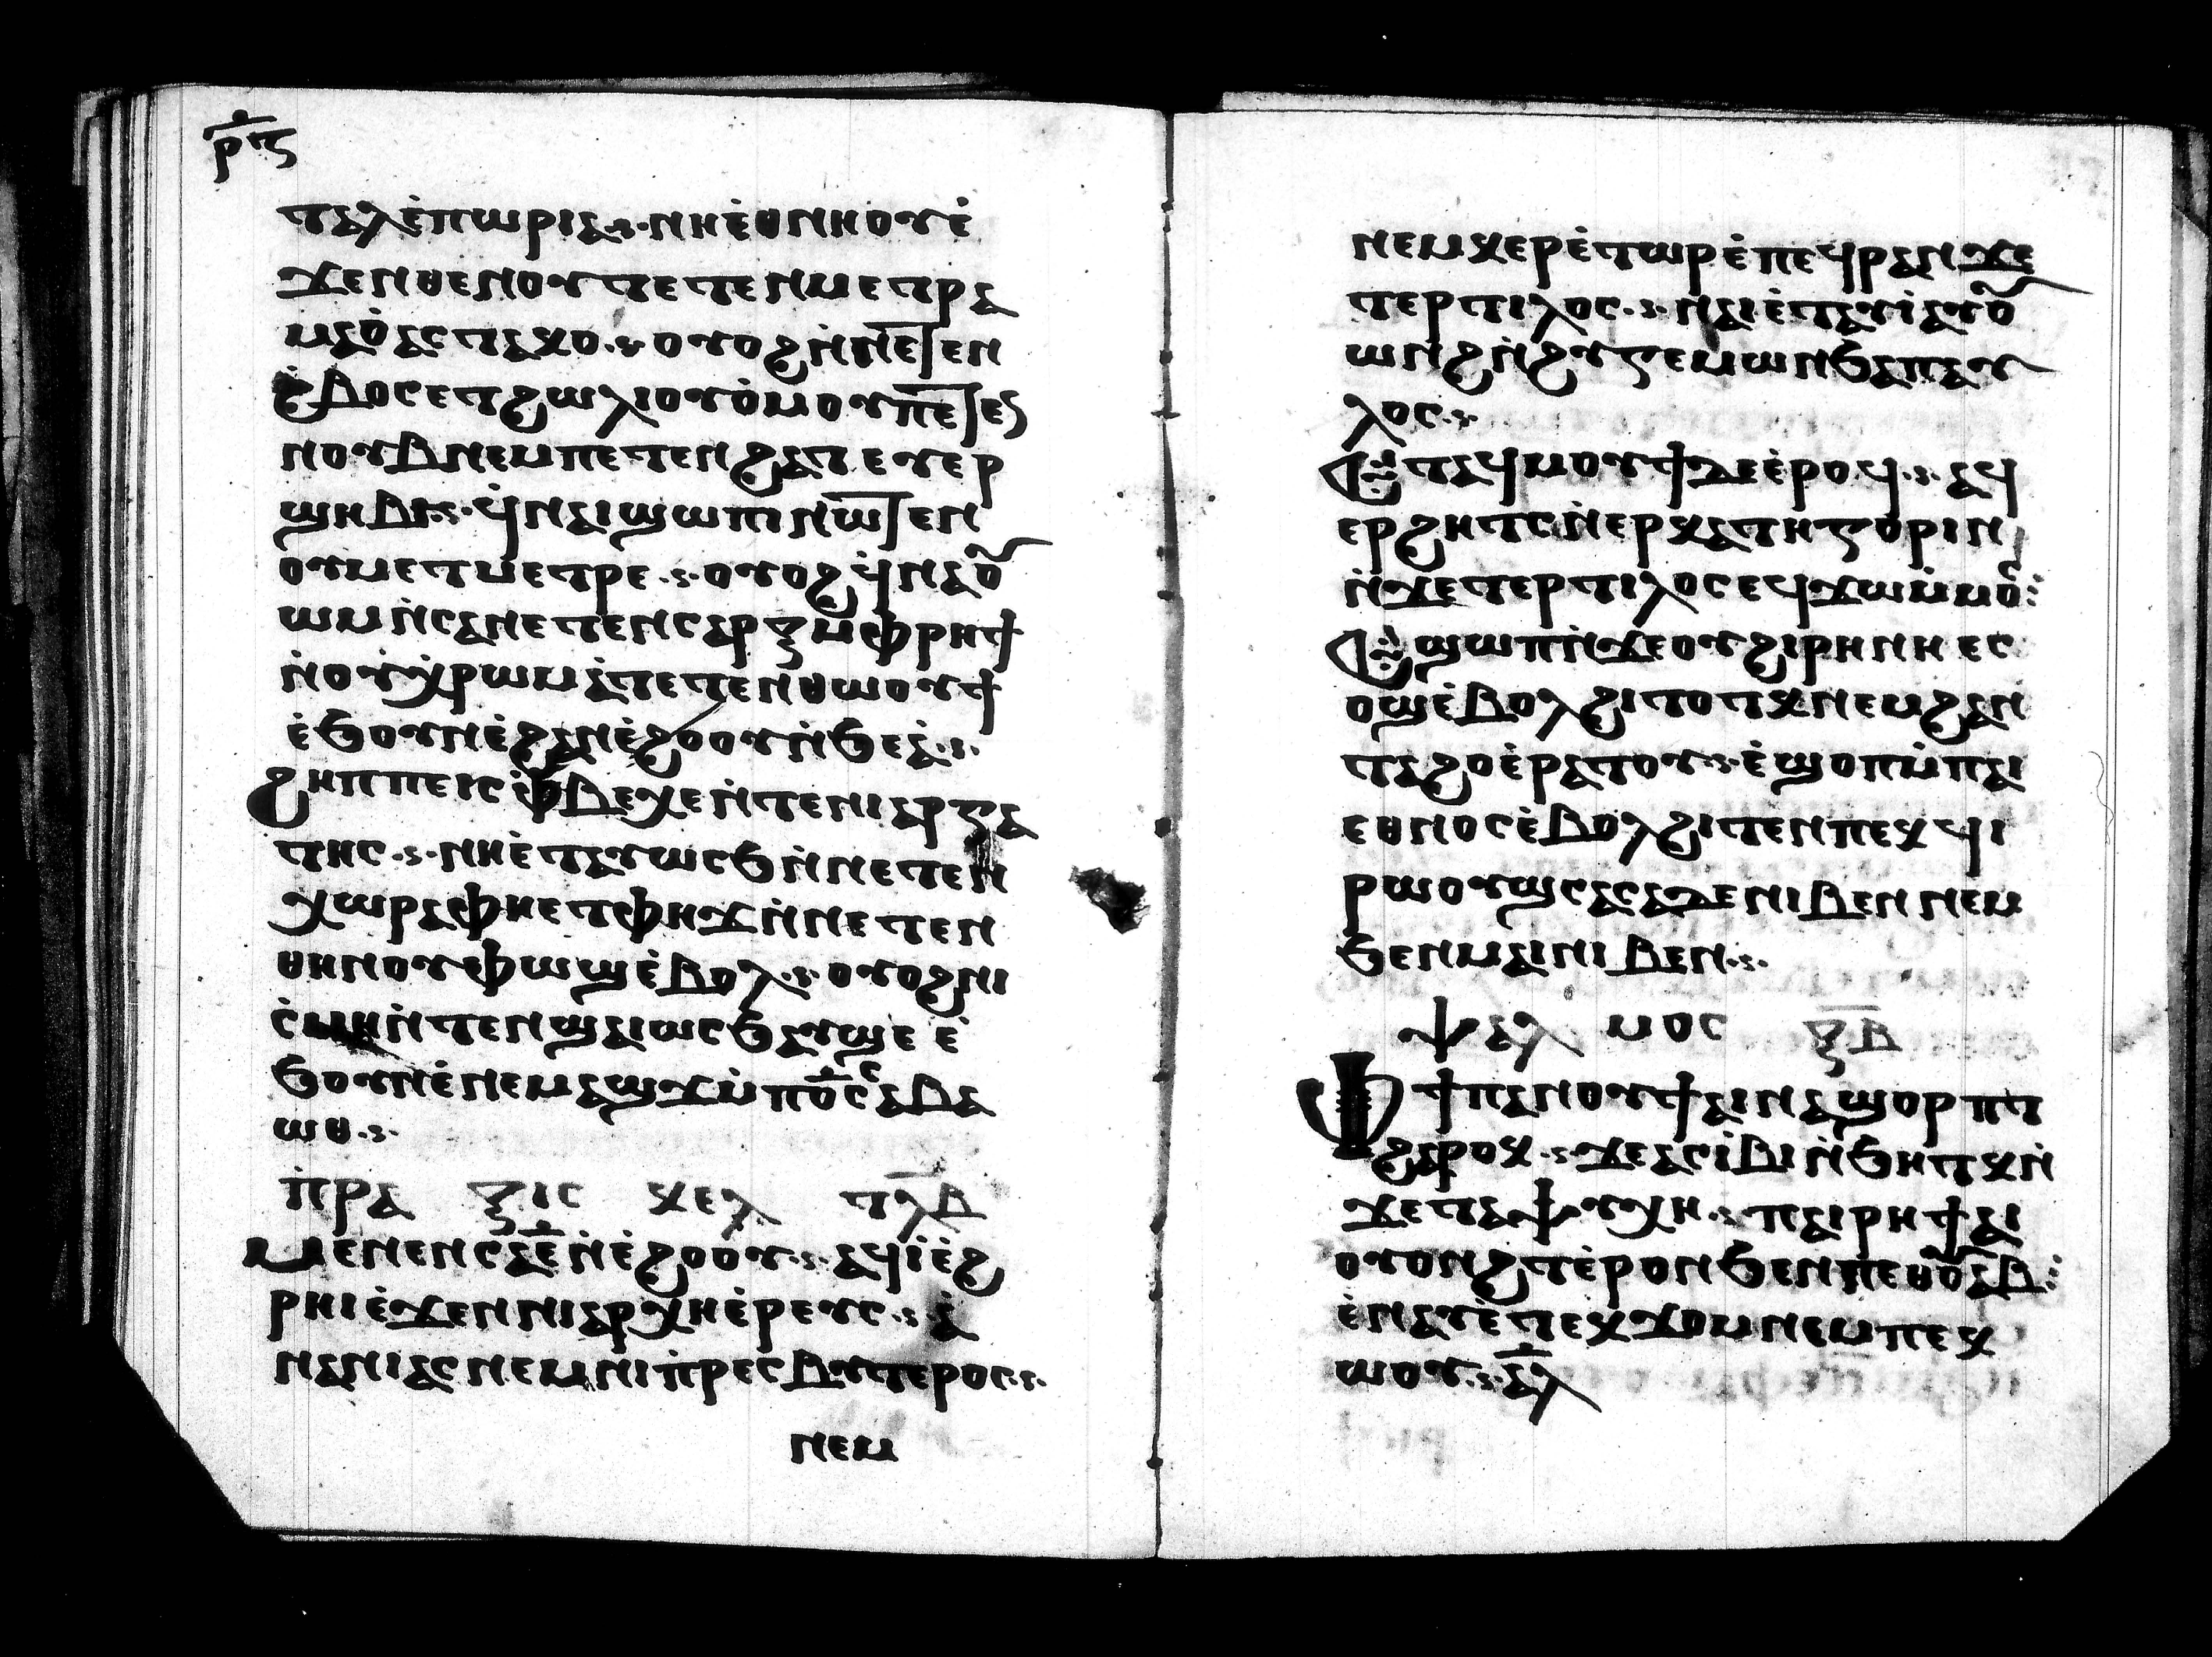 ⲣ̅ⲡ̅ⲋ̅
ⲧⲁⲗⲉ̀ⲡⲱⲣⲓⲁ·ⲋ·ⲛⲏⲉ̀ⲑⲛⲏⲟⲩⲉ̀
ϫⲉⲛⲑⲉⲛⲟⲩⲧⲉⲧⲉⲛⲙⲉⲧⲣⲁ
ⲙⲁⲟ̀ⲁⲥⲧⲁⲕⲟ·ⲋ·ⲟⲩⲟϩⲛ̀ⲛⲉⲧⲉⲛ
ϩ̀ⲃⲟⲥⲉⲧϩⲱⲗⲓⲟⲩⲟ̀ⲙⲟⲩⲡⲉⲧⲉⲛ
ⲛⲟⲩⲃⲛⲉⲙⲡⲉⲧⲉⲛϩⲁⲧ ⲉⲩⲉⲣ
ϣⲏⲃⲓ·ⲋ·ϥ̀ⲛⲁⲓϣⲱⲡⲓ ⲛⲱⲧⲉⲛ
ⲟⲩⲙⲉⲧⲙⲉⲧⲣⲉ·ⲋ·ⲟⲩⲟϩϥ̀ⲛⲁⲟⲩ
ⲱⲙⲛ̀ⲥⲁⲛⲉⲧⲉⲛⲥⲁⲣⲝⲙ̀ⲫⲣⲏϯ
ⲛ̀ⲟⲩⲭ̀ⲣⲱⲙⲁ̀ⲧⲉⲧⲉⲛⲑⲱⲟⲩϯ
ⲉ̀ϧⲟⲩⲛⲉ̀ϩⲁⲛⲉ̀ϩⲟⲟⲩⲛ̀ϧⲉⲁ̀·ⲋ·
ϩⲏⲡⲡⲉⲓⲥⲫ̀ⲃⲉⲭⲉⲛ̀ⲧⲉⲛⲓⲁⲣⲅⲁ
ⲧⲏⲥ·ⲋ·ⲛⲏⲉ̀ⲧⲁⲩⲱⲥϧⲛ̀ⲛⲉⲧⲉⲛ
ⲭⲱⲣⲁⲫⲏⲉⲧⲫⲏϫⲛ̀ⲛⲉⲧⲉⲛ
ⲑⲏⲛⲟⲩⲫⲱϣⲉ̀ⲃⲟⲗ·ⲋ·ⲟⲩⲟϩⲛⲓ
ⲥ̀ⲙⲏⲛ̀ⲧⲉⲛϣⲁⲓⲱⲥϧⲁⲩϣⲉ ⲉ̀
ϧⲟⲩⲛⲉ̀ⲛⲉⲙⲁϣϫⲙ̀ⲡⲟ̅ⲥ̅ⲥⲁⲃⲁ
ⲱⲑ·ⲋ·
ⲡ̀ⲣⲁ ⲝⲓⲥ ⲕⲉⲗ ⲧⲗ̅ⲃ̅
ⲙⲉⲛⲉⲛⲥⲁⲉ̅ⲛ̀ⲉ̀ϩⲟⲟⲩ·ⲋ·ⲁϥⲓ̀ⲉ̀ϩ
ⲣⲏⲓⲉ̀ϫⲉⲛⲛⲓⲁⲣⲭⲏⲉ̀ⲣⲉⲩⲥ·ⲋ·ⲁ̀
ⲛⲁⲛⲓⲁⲥ ⲛⲉⲙⲛⲓⲡ̀ⲣⲉⲥⲃⲩⲧⲉⲣⲟⲥ·ⲋ·
ⲛⲉⲙ
ⲛⲉⲙⲕⲉⲣⲉ̀ⲧⲱⲣⲉ̀ⲡⲉϥⲣⲁⲛϫⲉ
ⲧⲉⲣⲧⲓⲗⲟⲥ·ⲋ·ⲛⲁⲓⲉ̀ⲧⲁⲩⲓ̀ⲁⲩⲟⲩ
ⲱⲛϩⲛ̀ϩⲩⲅⲉⲙⲱⲛϧⲁⲡⲁⲩ
ⲗⲟⲥ·ⲋ·
ⲉⲧⲁϥⲙⲟⲩϯⲇⲉⲉ̀ⲣⲟϥ·ⲋ·ⲁϥ
ⲉⲣϩⲏⲧⲥⲛ̀ⲉⲣⲕⲁⲧⲏⲅⲟⲣⲓⲛ
ⲛ̀ϫⲉⲧⲉⲣⲧⲓⲗⲟⲥⲉϥϫⲱⲙ̀ⲙⲟ̅:
ⲉϣⲱⲡⲛ̀ϫⲉⲟⲩϩⲓⲣⲏⲛⲏ ⲉⲥ
ⲟϣⲉ̀ⲃⲟⲗϩⲓⲧⲟⲧⲕⲛⲉⲙϩⲁⲛ
ⲧⲁϩⲟⲉ̀ⲣⲁⲧⲟⲩ·ⲋ·ⲉ̀ϣⲟⲡⲙ̀ⲡⲁⲓ
ⲉⲑⲛⲟⲥⲉ̀ⲃⲟⲗϩⲓⲧⲉⲛⲡⲉⲕϥⲓ
ⲣⲱⲟⲩϣⲥⲁⲥⲁⲇⲉⲛⲓⲃⲉⲛ ⲛⲉⲙ
ϧⲉⲛⲙⲁⲓⲛⲓⲃⲉⲛ·ⲋ·
ⲯⲁⲗ ⲙⲟⲥ ⲝ̅ⲃ̅
ⲫϯⲡⲁⲛⲟⲩϯⲁⲓⲛⲁϣⲟⲣⲡⲧ
ϩⲁⲣⲟⲕ·ⲋ·ϫⲉⲁⲥⲓ̀ⲃⲓⲛ̀ϧⲏⲧⲕⲛ̀
ϫⲉⲧⲁⲯⲩⲭⲏ·ⲋ·ⲡⲁⲓⲣⲏϯⲁⲓ
ⲟⲩⲟⲛϩⲧⲉ̀ⲣⲟⲛϧⲉⲛⲡⲉⲑⲟⲩⲁⲃ:
ⲉ̀ⲛⲁⲩⲉ̀ⲧⲉⲕϫⲟⲙⲛⲉⲙⲡⲉⲕ
ⲱⲟⲩ·ⲋ·ⲁ̅ⲗ̅